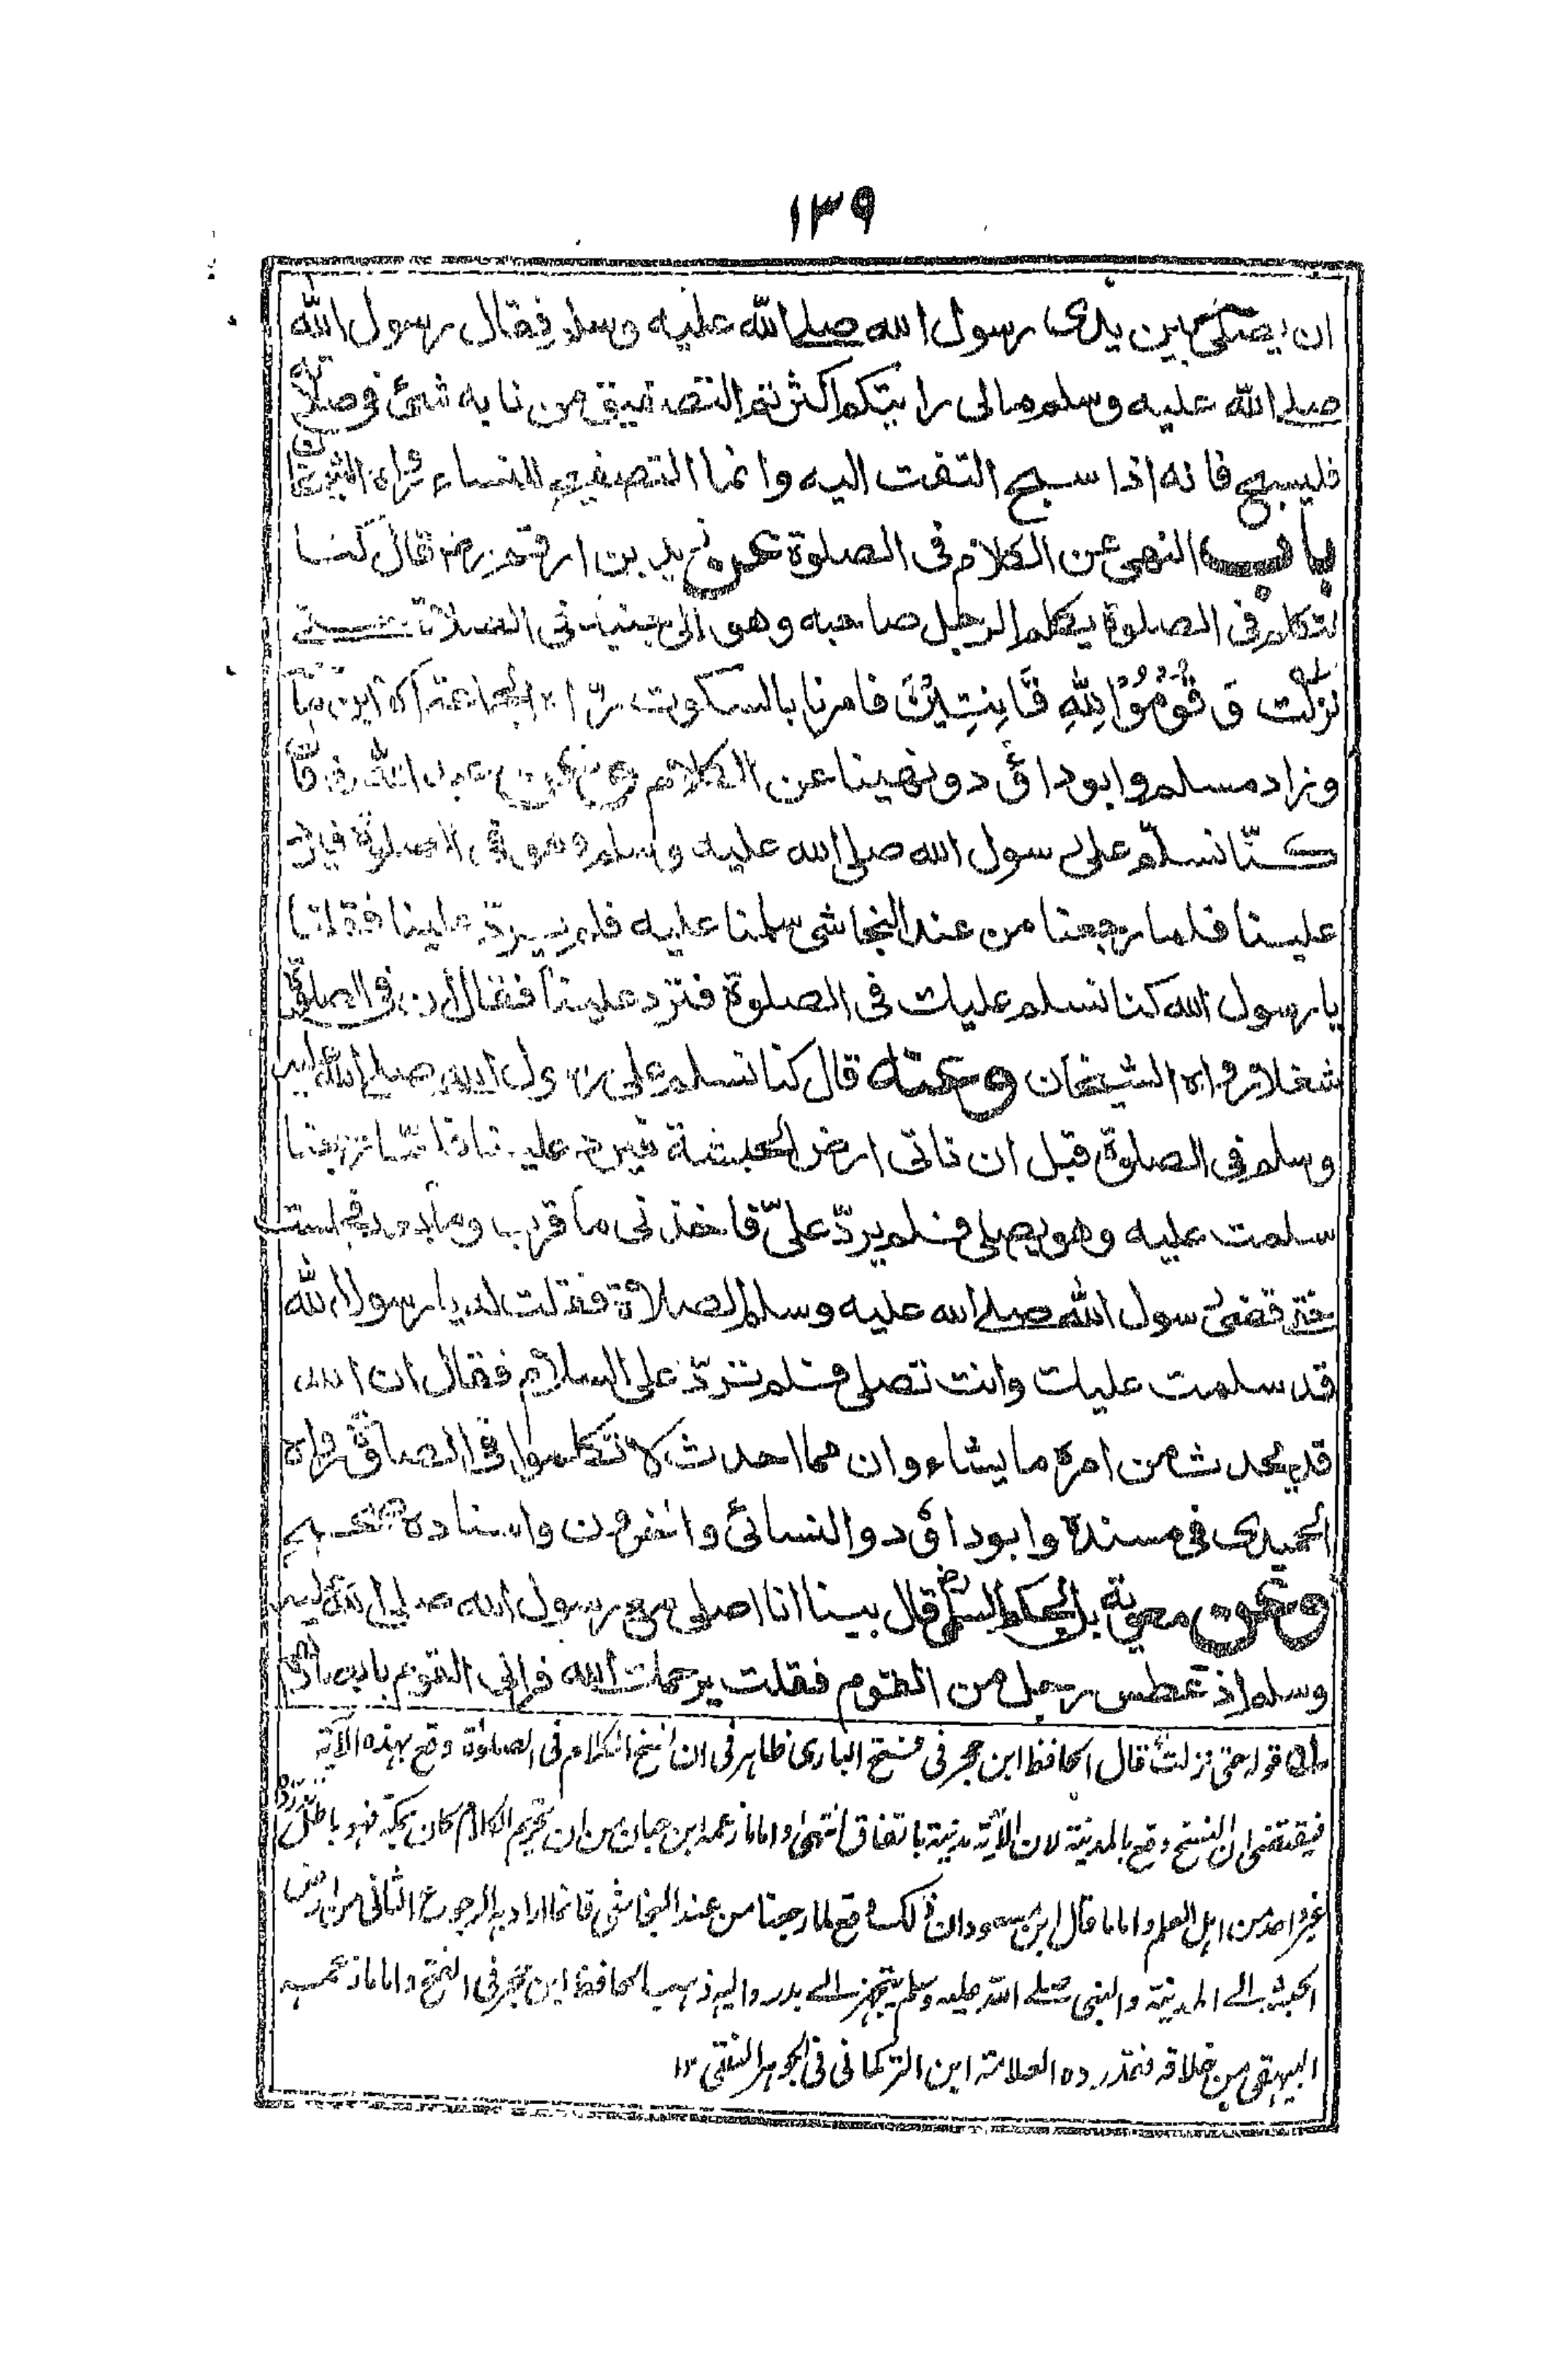 ١٣٩
ان يصلى بين يدى رسول الله صلى الله عليه وسلم فقال رسول الله
صلى الله عليه وسلم مالى رايتكم اكثرتم التصفيق من نابه شئ فى صلاته
فليسبح فانه اذا سبح التفت اليه وانما التصفيح للنساء رواه الشيخان
باب النهى عن الكلام فى الصلوة عن زيد بن ارقم رض قال كنا
نتكلم فى الصلوة يكلم الرجل صاحبه وهو الى جنبه فى الصلاة حتى
نزلت وَقُوْمُوْا لِلّٰهِ قَانِتِيْنَ فامرنا بالسكوت رواه الجماعة الا ابن ماجة
وزاد مسلم وابوداؤد ونهينا عن الكلام وعن عبد الله رض قال
كنّا نسلّم على رسول الله صلى الله عليه وسلم وهو فى الصلوة فيرد
علينا فلما رجعنا من عند النجاشى سلمنا عليه فلم يردّ علينا فقلنا
يا رسول الله كنا نسلم عليك فى الصلوة فترد علينا فقال ان فى الصلوة
شغلا رواه الشيخان وعنه قال كنا نسلم على رسول الله صلى الله عليه
وسلم فى الصلوة قبل ان ناتى ارض الحبشة فيرد علينا فلما رجعنا
سلمت عليه وهو يصلى فلم يردّ علىّ فاخذنى ما قرب وما بعد فجلست
حتى قضى رسول الله صلى الله عليه وسلم الصلاة فقلت له يا رسول الله
قد سلمت عليك وانت تصلى فلم تردّ على السلام فقال ان الله
قد يحدث من امره ما يشاء وان مما احدث ان لا تكلموا فى الصلوة رواه
الحميدى فى مسنده وابوداؤد والنسائى واٰخرون واسناده صحيح
وعن معوية بن الحكم السلمى رض قال بينا انا اصلى مع رسول الله صلى الله عليه
وسلم اذ عطس رجل من القوم فقلت يرحمك الله فرمانى القوم بابصارهم
له قوله حتى نزلت قال الحافظ ابن حجر فى فتح البارى ظاهر فى ان نسخ الكلام فى الصلوة وقع بهذه الآية
فيقتضى ان النسخ وقع بالمدينة لان الآية مدنية باتفاق انتهى واما ما زعمه ابن حبان من ان تحريم الكلام كان بمكة فهو باطل رده
غير واحد من اهل العلم واما ما قال ابن مسعود ان ذلك وقع لما رجعنا من عند النجاشى فانما اراد به الرجوع الثانى من ارض
الحبشة الى المدينة والنبى صلى الله عليه وسلم يتجهز الى بدر واليه ذهب الحافظ ابن حجر فى الفتح واما ما زعمه
البيهقى من خلافه فقد رده العلامة ابن التركمانى فى الجوهر النقى ١٢